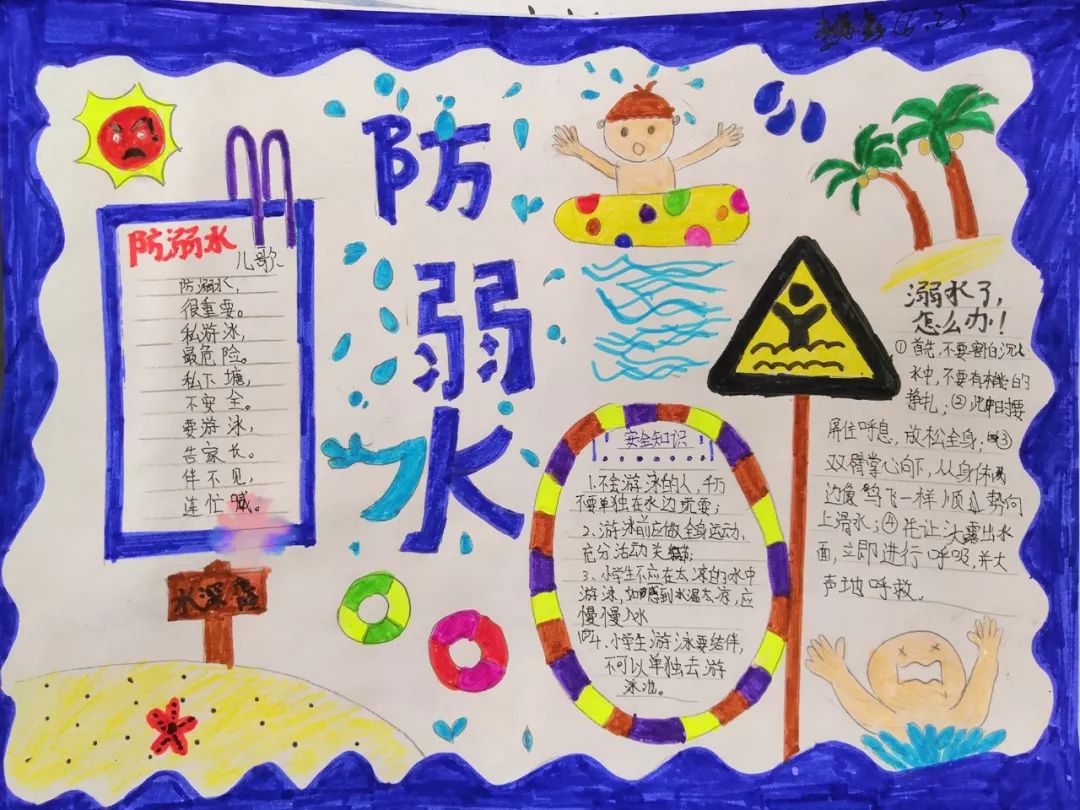 (6.2)
防
溺
水
防溺水
儿歌
防溺水，
很重要。
私游泳，
最危险。
私下塘，
不安全。
要游泳，
告家长。
伴不见，
连忙喊。
水深
安全知识
1.不会游泳的人，千万
不要单独在水边玩耍；
2、游泳前应做全身运动，
充分活动关节；
3、小学生不应在太凉的水中
游泳，如感到水温太凉，应
慢慢入水
4、小学生游泳要结伴，
不可以单独去游
泳池。
溺水了，
怎么办！
①首先，不要害怕沉入
水中，不要有的
挣扎；②此时要
屏住呼息，放松全身；③
双臂掌心向下，从身体两
边像鸟飞一样顺势向
上滑水；④凭让头露出水
面，立即进行呼吸，并大
声地呼救。